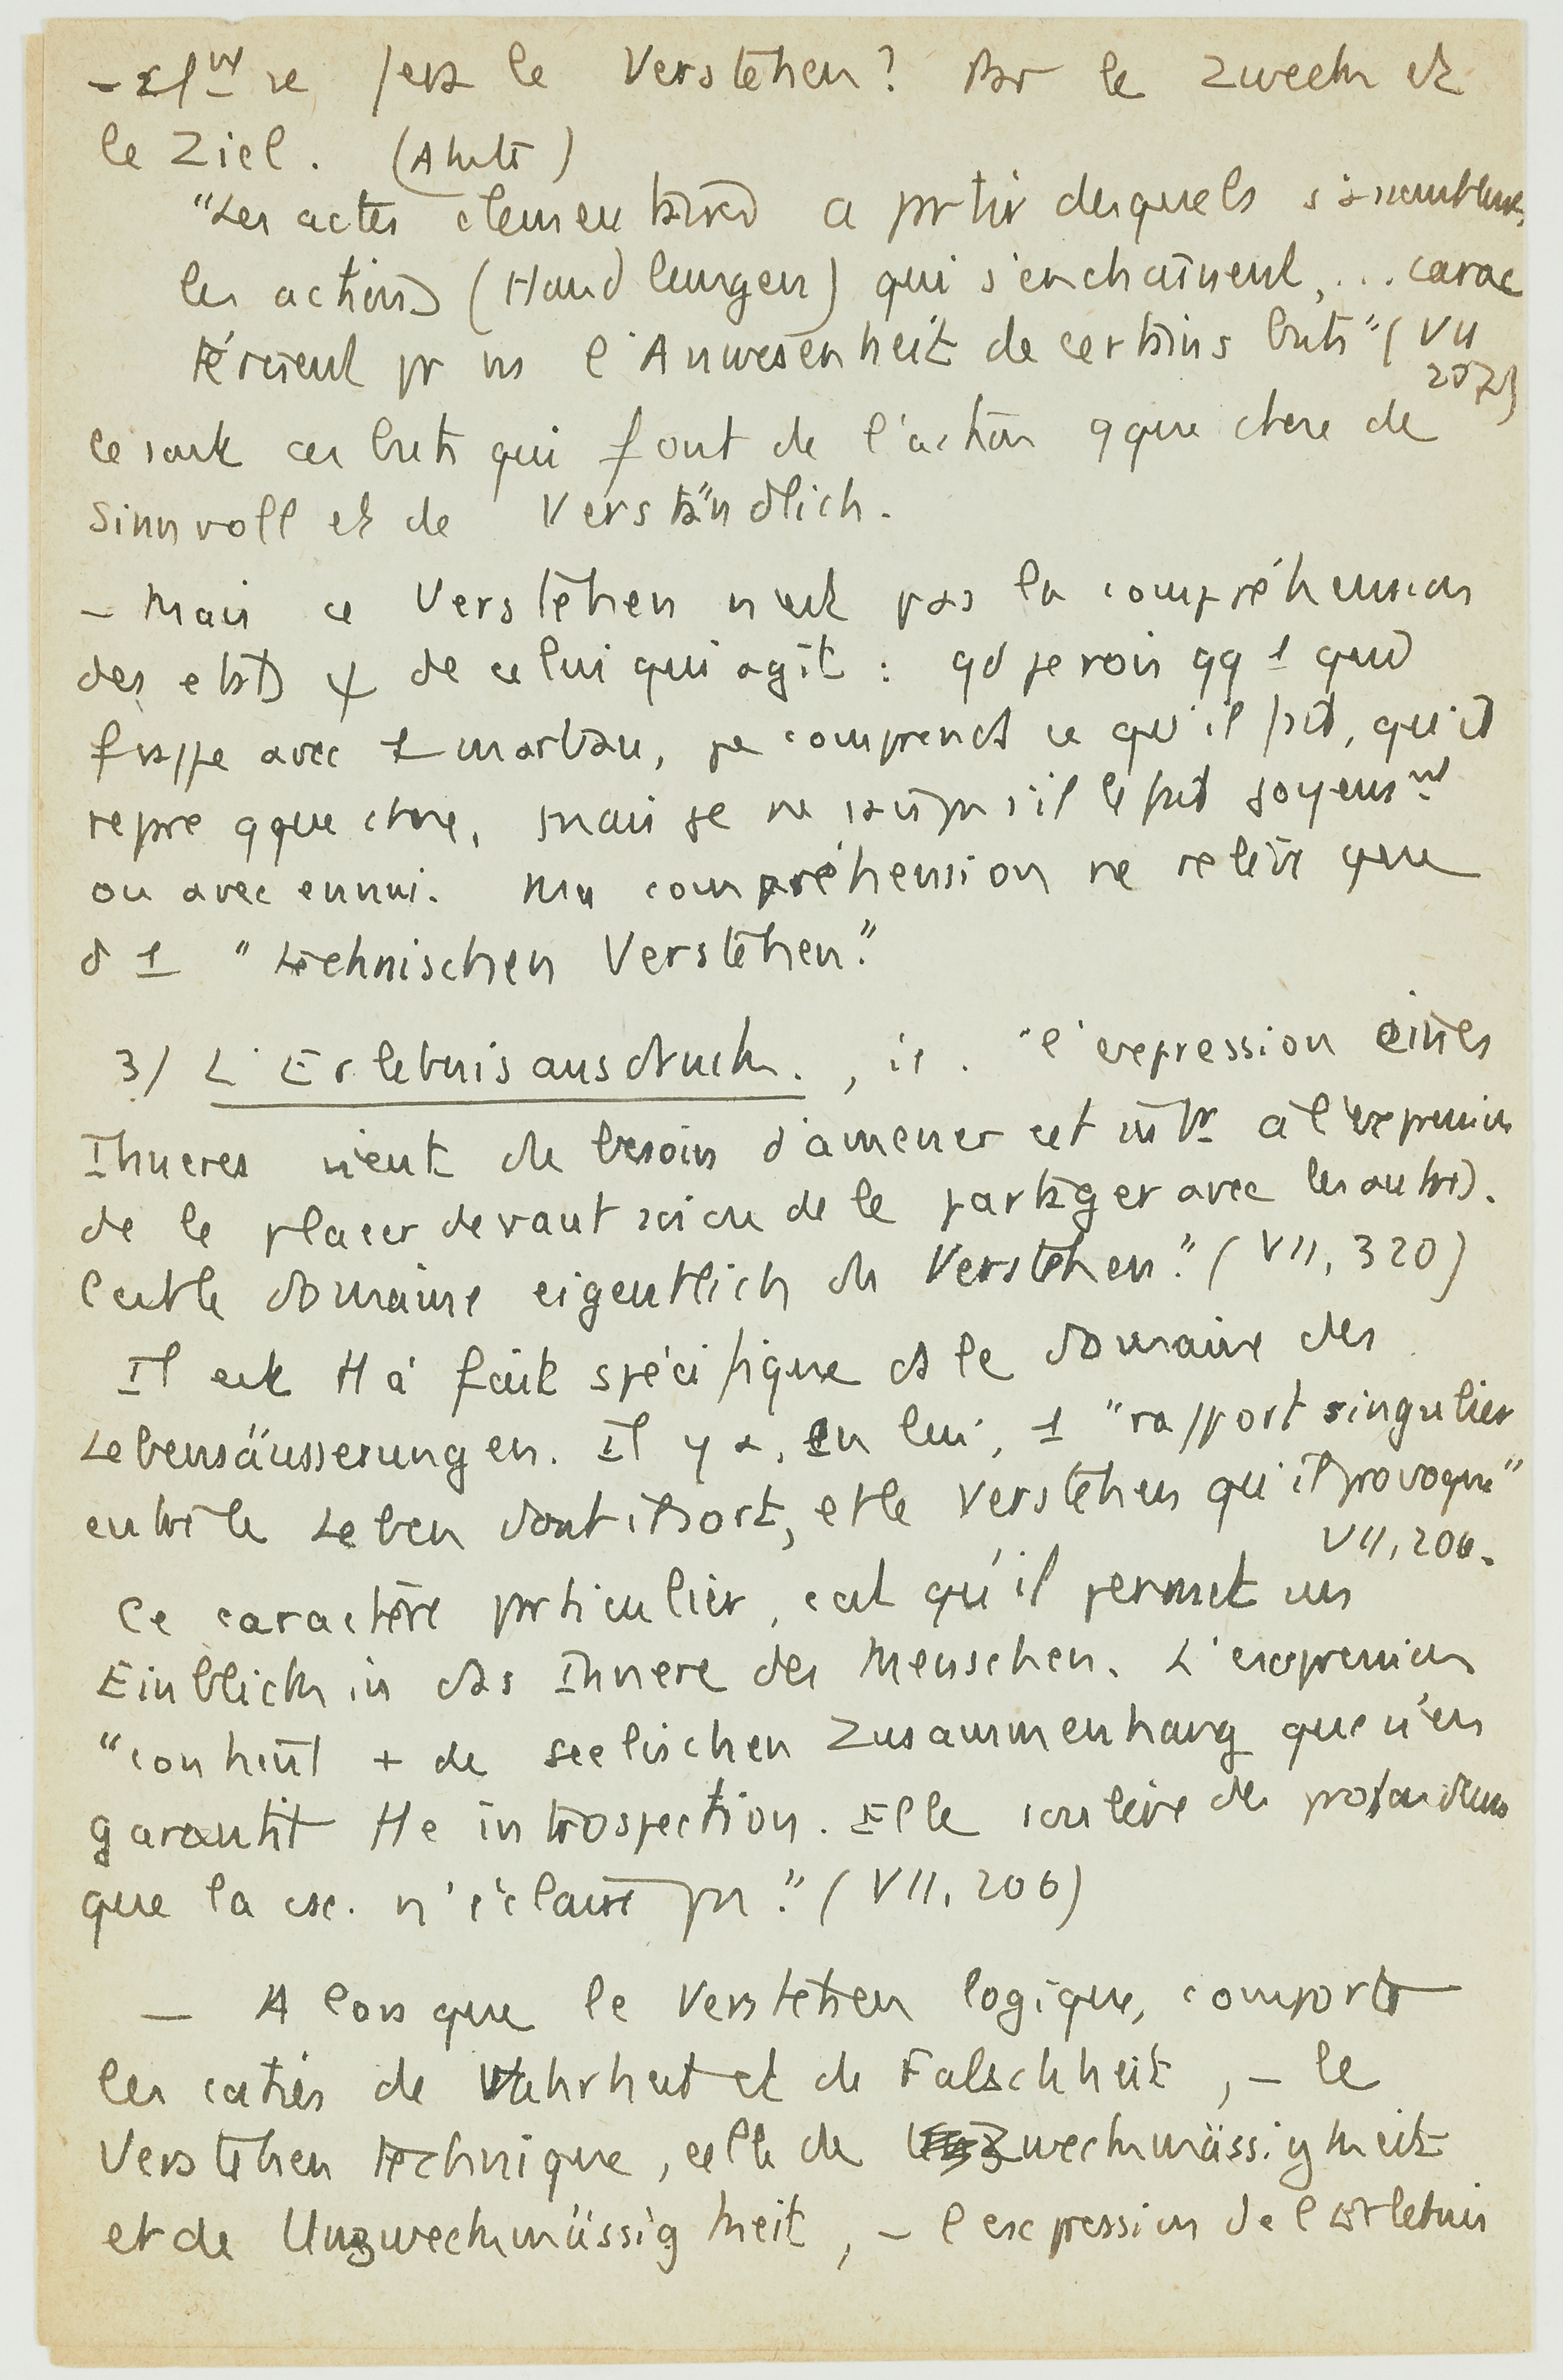 - Cmt se fait le Verstehen? Par le Zweck et
le Ziel. (Akte)
"Les actes élémentaires a prtir desquels s'assemblent
les actions (Handlungen) qui s'enchaînent, ... carac
térisent pr ns l'Anwesenheit de certains buts" (VII
207)
Ce sont ces buts qui font de l'action qque chose de
Sinnvoll et de Verständlich.
- Mais ce Verstehen n'est pas la compréhension
des etats ψ de celui qui agit : qd je vois qq 1 qui
frappe avec 1 marteau, je comprends ce qu'il fait, qu'il
repre qque chose, mais je ne sais pas s'il le fait joyeusmt
ou avec ennui. Ma compréhension ne relève que
d 1 "technischen Verstehen."
3/ L'Erlebnisausdruck. , ie. "l'expression eines
Inneres vient du besoin d'amener cet intr à l'expression
de le placer devant soi ou de le partager avec les autres.
C'est le domaine eigentlich du Verstehen." (VII, 320)
Il est tt à fait spécifique ds le domaine des
Lebensäusserungen. Il y a, en lui, 1 "rapport singulier
entre le Leben dont il sort, et le Verstehen qu'il provoque"
VII, 206.
Ce caractère prticulier, c'est qu'il permet un
Einblick in das Innere des Menschen. L'expression
"contient + de seelischen Zusammenhang que n'en
garantit tte introspection. Elle soulève des profondeurs
que la csc. n'éclaire pas." (VII, 206)
- Alors que le Verstehen logique, comporte
les caties de Wahrheit et de Falschheit, - le
Verstehen technique, celle de Zweckmässigkeit
et de Unzweckmässigkeit, - l'expression de l'Erlebnis